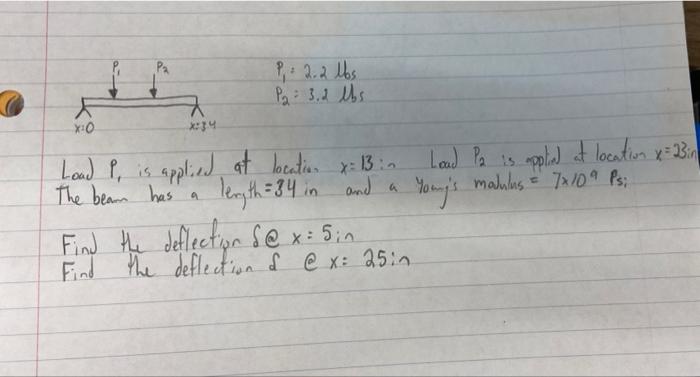 P₁ P₂
P₁ = 2.2 lbs
P₂ = 3.2 lbs
x=0 x=34
Load P₁ is applied at location x=13 in Load P₂ is applied at location x=23in
The beam has a length=34 in and a Young's modulus = 7x10⁹ Psi
Find the deflection δ@ x= 5in
Find the deflection δ @ x= 25in